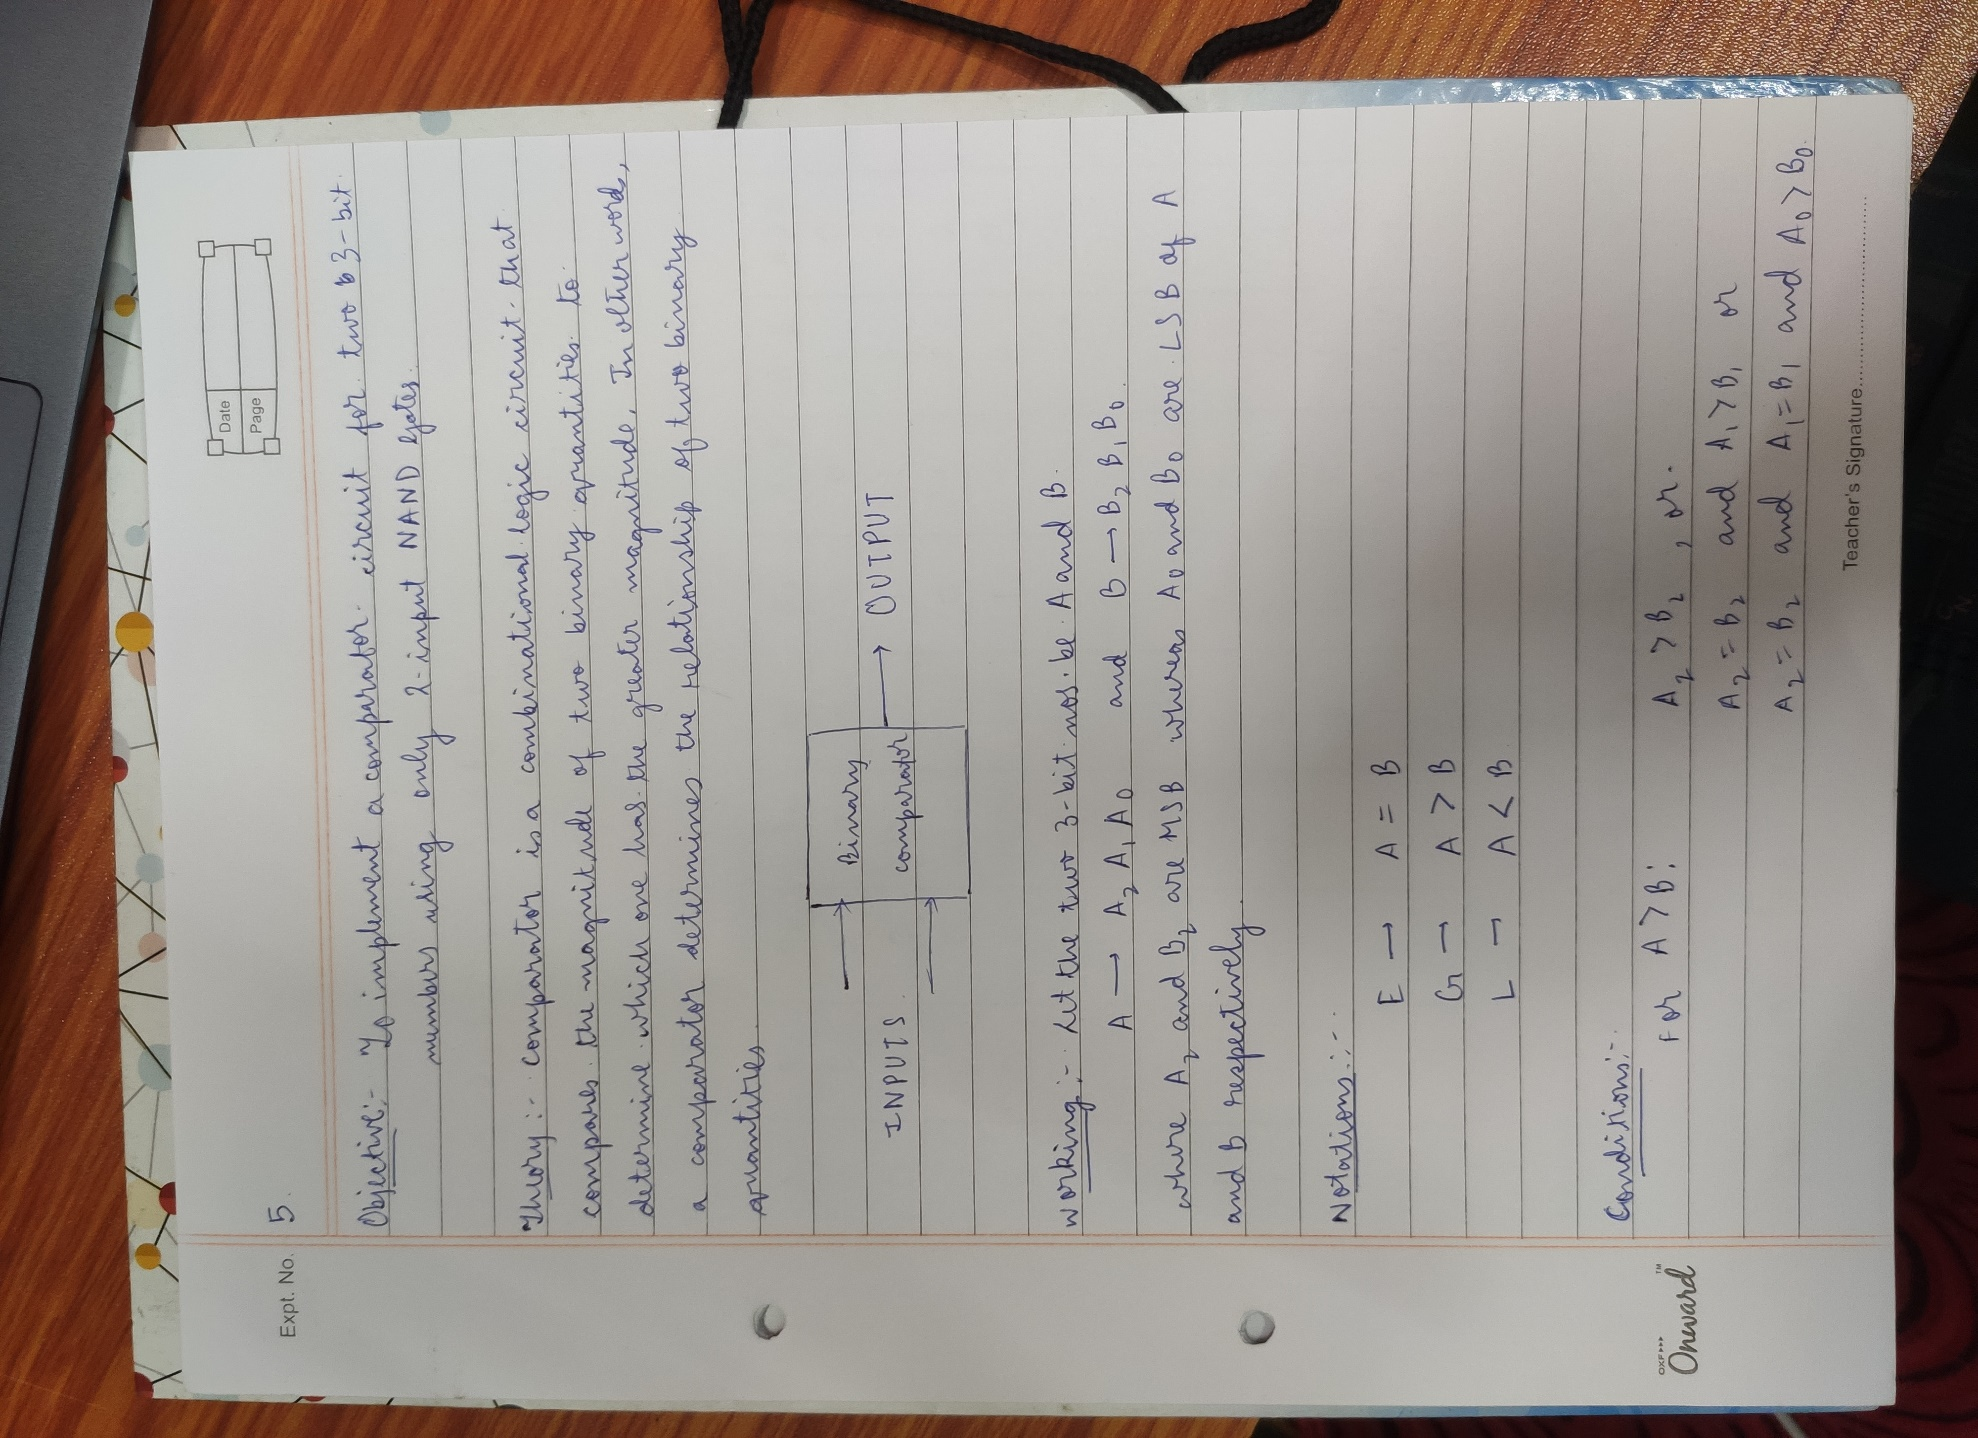 Date
Page
Expt. No. 5.
Objective:- To implement a comparator circuit for two 3-bit
numbers using only 2-input NAND gates.
Theory:- Comparator is a combinational logic circuit that
compares the magnitude of two binary quantities to
determine which one has the greater magnitude. In other words,
a comparator determines the relationship of two binary
quantities.
Binary
INPUTS → OUTPUT
comparator
Working:- Let the two 3-bit nos. be A and B.
A → A₂ A₁ A₀ and B → B₂ B₁ B₀
where A₂ and B₂ are MSB whereas A₀ and B₀ are LSB of A
and B respectively
Notations:-
E → A = B
G → A > B
L → A < B
Conditions:-
For A > B: A₂ > B₂, or
A₂ = B₂ and A₁ > B₁ or
A₂ = B₂ and A₁ = B₁ and A₀ > B₀.
OXF▸▸▸
Onward™
Teacher's Signature